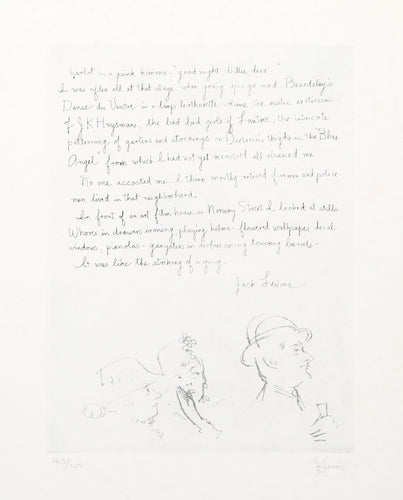 harlot in a pink kimono - "good night, Willie, dear."
I was after all at that stage when young apes go mad. Beardsley's
Danse du Ventre in a limp leatherette volume, the exotic eroticism
of J.K Huysmans, the bad bad girls of Lautrec, the intricate
patterning of garters and stockings on Dietrich's thighs in the "Blue
Angel from which I had not yet recovered all obsessed me
No one accosted me. I think mostly retired firemen and police
men lived in that neighborhood.
In front of an art film house on Norway Street I looked at stills.
Whores in drawers ironing, playing - flowered wallpaper, decal
windows, pianolas - gangsters in derbies
It was like the striking of a gong.
Jack Levine
43/100
J Levine